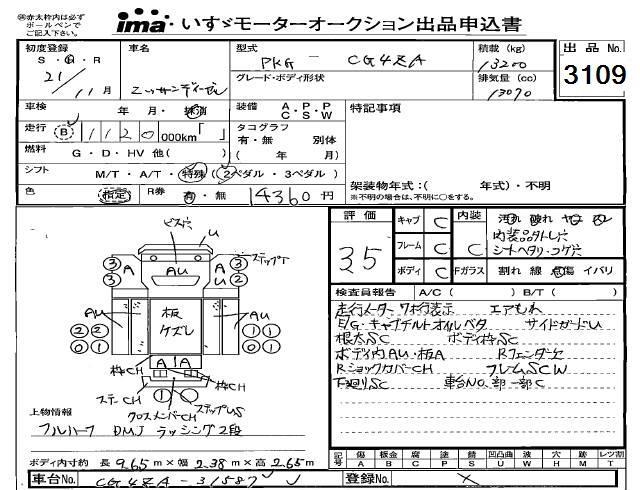 ㊟赤太枠内は必ず
ボールペンで
ご記入下さい。
ima いすゞモーターオークション出品申込書
初度登録 車名 型式 積載 (kg) 出品No.
S・H・R PKG - CG4ZA 13200 3109
21/11月 ニッサンディーゼル グレード・ボディ形状 排気量 (cc)
13070
車検 年 月・抹消 装備 A・P・P 特記事項
C・S・W
走行 B 1120 000km「 」 タコグラフ
有・無 別体
燃料 G・D・HV 他( ) ( 年 月)
シフト M/T・A/T・特殊 (2ペダル・3ペダル) 架装物年式:( 年式)・不明
※不明の場合は、不明に○をする。
色 指定 R券 有・無 14360円
評価 キャブ C 内装 汚れ 破れ ヤニ
35 フレーム C C 内装品外レ穴
シートヘタリ・コゲ穴
ボディ C Fガラス 割れ 線 点傷 イバリ
ビス穴 U
ステップT
3 3 A AU A 3 2
AU 板ケズレ AU
2 2 1 1
0 1 0 1
A A
枠CH 枠CH
ステーCH 1 1 ステップUS
クロスメンバーCH
検査員報告 A/C( ) B/T( )
走行メーター7桁表示 エアもれ
E/G・キャブチルトオイルベタ サイドガードU
根太SC ボディ枠SC
ボディ内AU・板A Rフェンダーセ
RショックカバーCH フレームSCW
下廻りSC 車台No.部一部C
上物情報
フルハーフ DMJ ラッシング2段
ボディ内寸約 長 9.65m×幅 2.38m×高 2.65m
記号 傷 A 板金 B 腐 C 塗 P サビ S 凹凸曲 U 波 W 穴 H 跡 M レツ割 T
車台No. CG4ZA-31587 登録No. ×